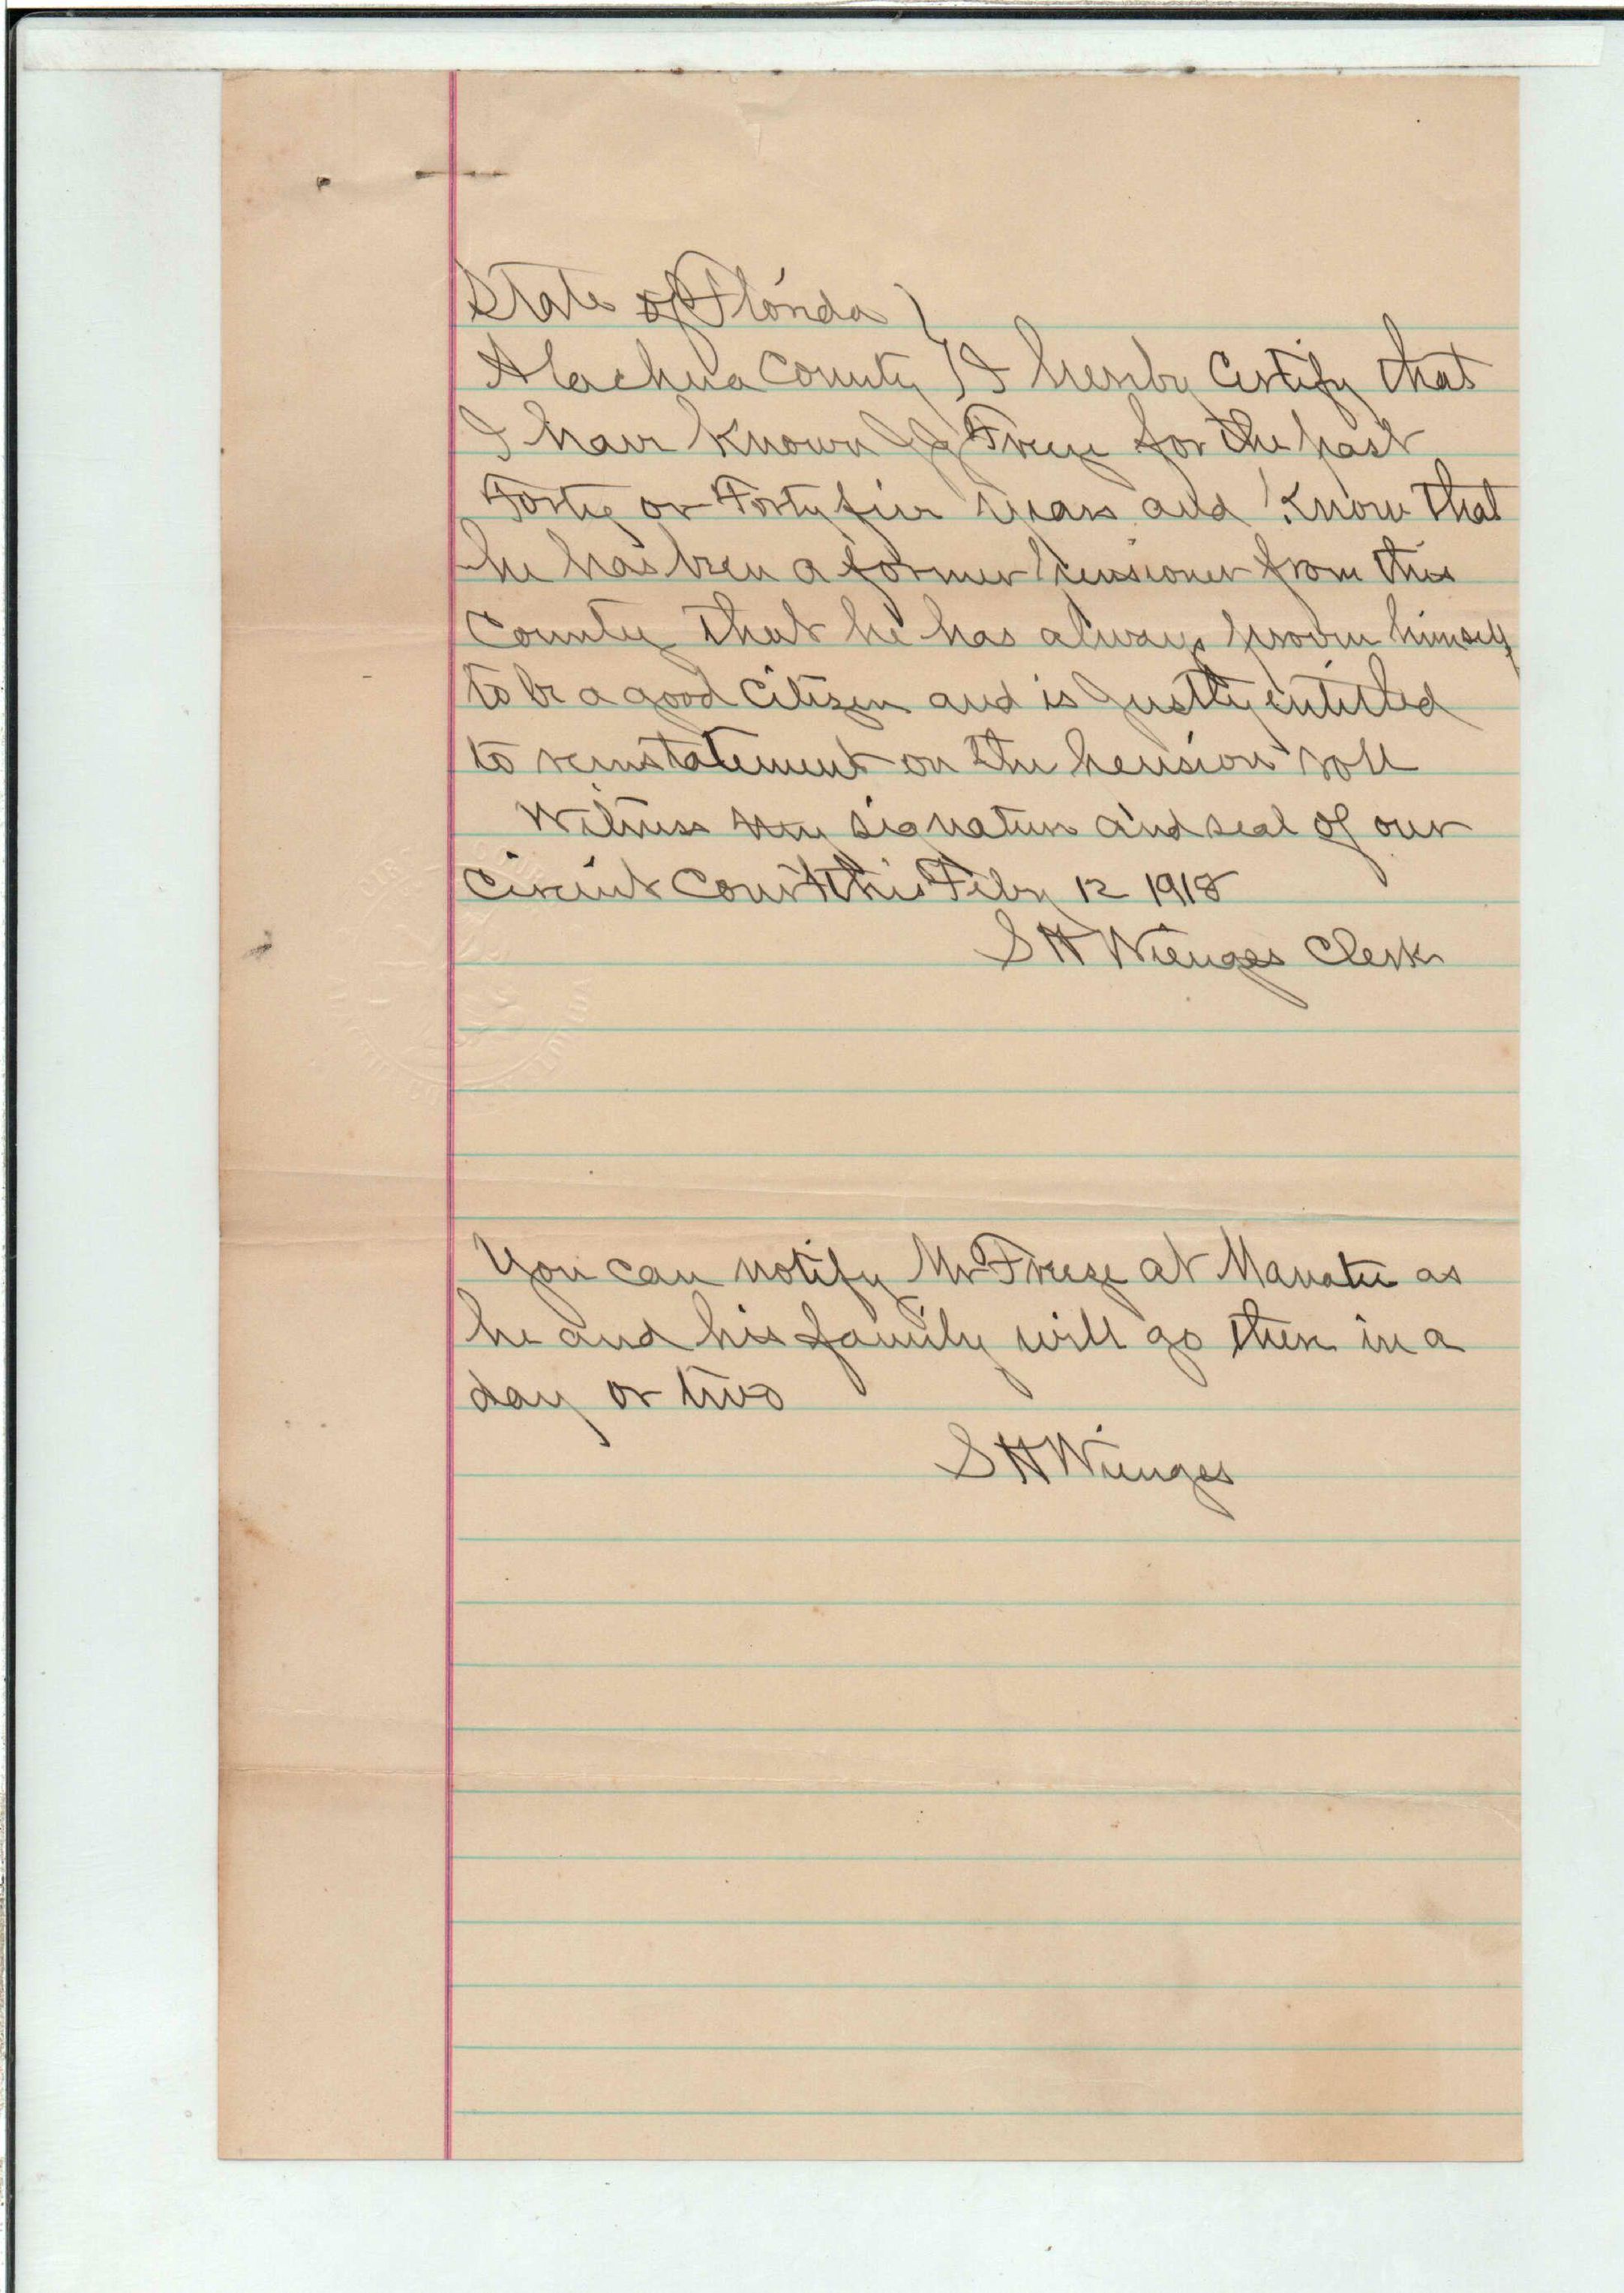 State of Florida )
Alachua County ) I hereby Certify that
I have Known J J Freeze for the past
Forty or Forty five years and Know that
he has been a former pensioner from this
County that he has always proven himself
to be a good Citizen and is Justly entitled
to reinstatement on the pension roll
Witness my signature and seal of our
Circuit Court this Feby 12 1918
S H Wienges Clerk
You can notify Mr Freeze at Manatee as
he and his family will go there in a
day or two
S H Wienges